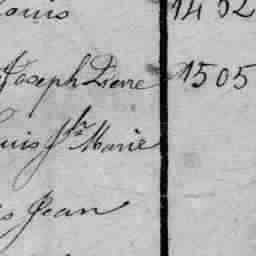 Louis 1482
Joseph Pierre 1505
Louis J.h Marie
Jean